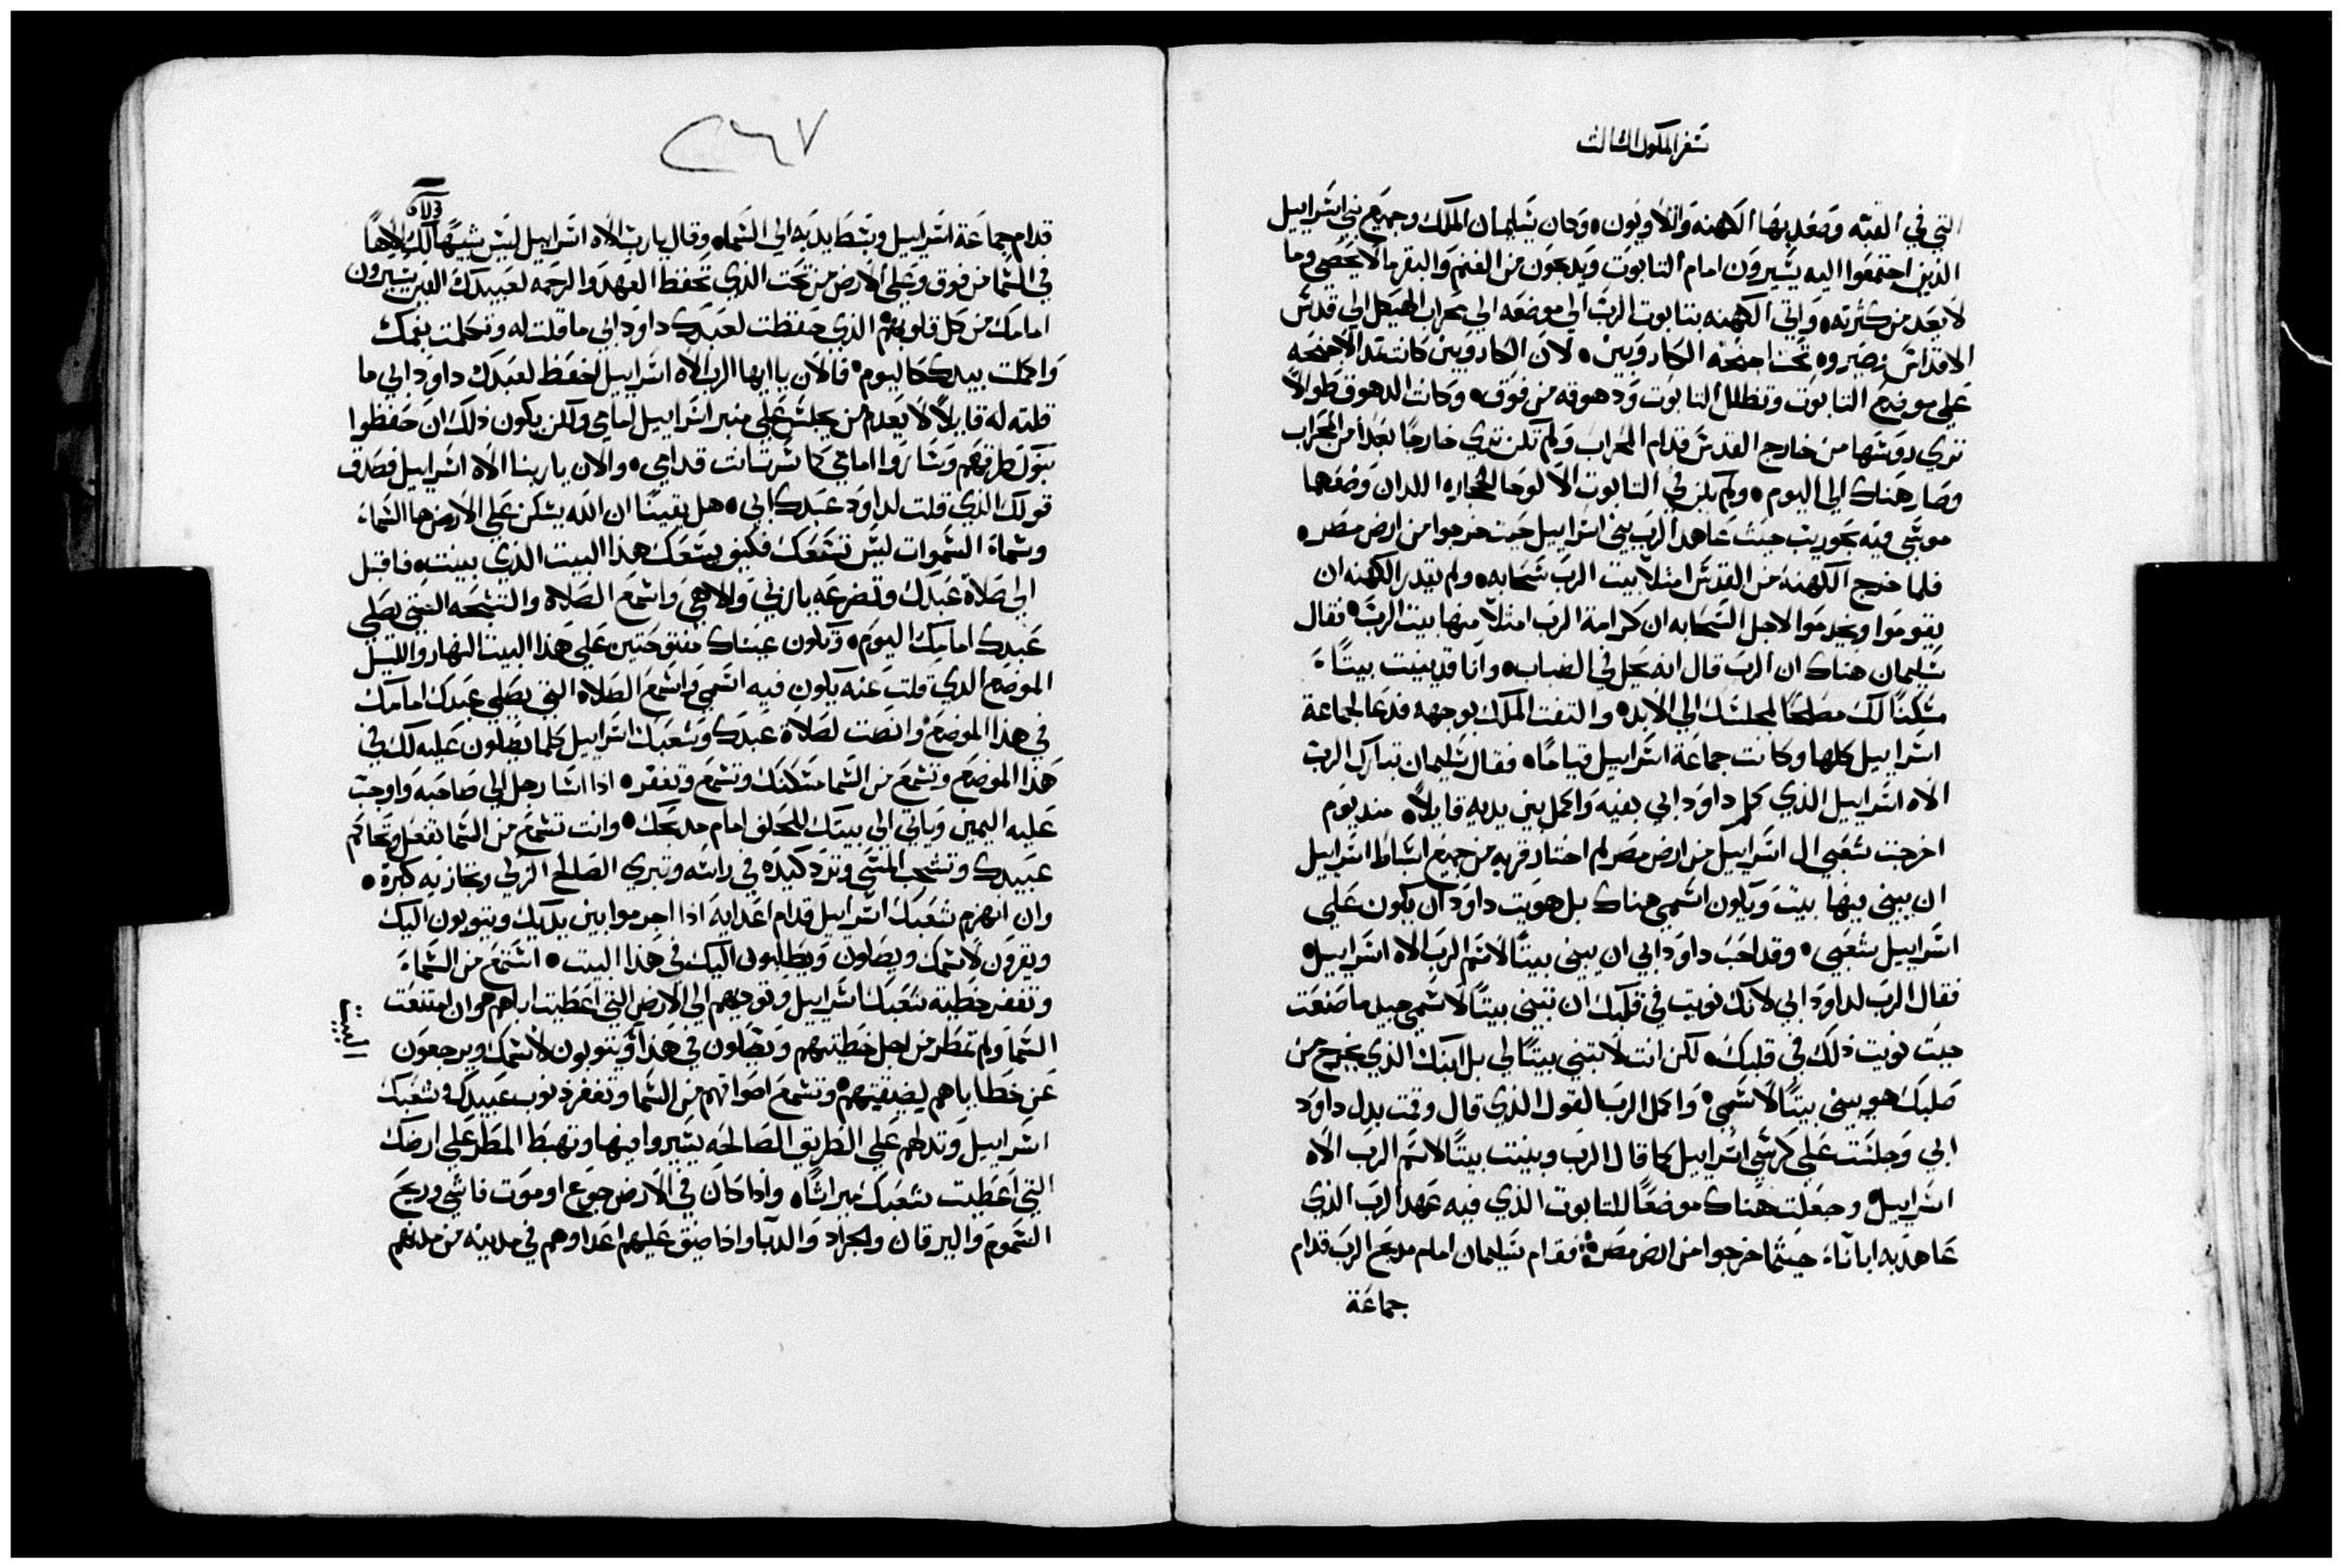 سفر الملوك الثالث
التي في القبه وصعد بها الكهنه واللاويون، وكان سليمان الملك وجميع بني اسراييل
الذين اجتمعوا اليه يسيرون امام التابوت ويدبحون من الغنم والبقر ما لا يحصي وما
لا يعد من كثرته، واتي الكهنه بتابوت الرب الي موضعه الي محراب الهيكل الي قدس
الاقداس وصيروه تحت اجنحه الكاروبين، لان الكاروبين كانت تمد الاجنحه
علي موضع التابوت وتظلل التابوت ودهوقه من فوق، وكانت الدهوق طوالاً
تري روسها من خارج القدس قدام المحراب ولم تكن تري خارجاً بعداً من المحراب
وصار هناك الي اليوم، ولم يكن في التابوت الا لوحا الحجاره اللدان وضعهما
موسي فيه بحوريت حيث عاهد الرب بني اسراييل حيث خرجوا من ارض مصر،
فلما خرج الكهنه من القدس امتلا بيت الرب سحابه، ولم يقدر الكهنه ان
يقوموا ويخدموا لاجل السحابه ان كرامة الرب امتلا منها بيت الرب، فقال
سليمان هناك ان الرب قال انه يحل في الضباب، وانا قد بنيت بيتاً
مسكناً لك مصلحاً لمجلسك الي الابد، والتفت الملك بوجهه فدعا لجماعة
اسراييل كلها وكانت جماعة اسراييل قياماً، فقال سليمان تبارك الرب
الاه اسراييل الذي كلم داود ابي بفيه واكمل بين يديه قايلاً، مند يوم
اخرجت شعبي ال اسراييل من ارض مصر لم اختار قريه من جميع اسباط اسراييل
ان يبني فيها بيت ويكون اسمي هناك بل هويت داود ان يكون علي
اسراييل شعبي، وقد احب داود ابي ان يبني بيتاً لاسم الرب الاه اسراييل،
فقال الرب لداود ابي لانك نويت في قلبك ان تبني بيتاً لاسمي جيد ما صنعت
حيت نويت ذلك في قلبك، لكن انت لا تبني بيتاً لي بل ابنك الذي يخرج من
صلبك هو يبني بيتاً لاسمي، واكمل الرب القول الذي قال وقمت بدل داود
ابي وجلست علي كرسي اسراييل كما قال الرب وبنيت بيتاً لاسم الرب الاه
اسراييل وجعلت هناك موضعاً للتابوت الذي فيه عهد الرب الذي
عاهد به ابانا حيثما خرجوا من ارض مصر، فقام سليمان امام مدبح الرب قدام
جماعة
٢٦٧
قدام جماعة اسراييل وبسط يديه الي السماء وقال يا رب الاه اسراييل ليس شبيهاً لك الاهاً
في السما من فوق وعلي الارض من تحت الذي تحفظ العهد والرحمه لعبيدك الدين يسيرون
امامك من كل قلوبهم، الذي حفظت لعبدك داود ابي ما قلت له وتكلمت بفمك
واكملت بيدك كاليوم، فالان يا ايها الرب الاه اسراييل احفظ لعبدك داود ابي ما
قلته له قايلاً لا يعدم من يجلس علي منبر اسراييل امامي ولكن يكون ذلك ان حفظوا
بنوك طرقهم وساروا امامي كما سرت انت قدامي، والان يا ربنا الاه اسراييل فصدق
قولك الذي قلت لداود عبدك ابي، هل يقيناً ان الله يسكن علي الارض ها السماء
وسماء السموات ليس تسعك فكيف يسعك هذا البيت الذي بنيته، فاقبل
الي صلاة عبدك وتضرعه يا ربي والاهي واسمع الصلاه والتسبحه التي يصلي
عبدك امامك اليوم، وتكون عيناك مفتوحتين علي هذا البيت النهار والليل
الموضع الدي قلت عنه يكون فيه اسمي واسمع الصلاه التي يصلي عبدك امامك
في هذا الموضع وانصت لصلاة عبدك وشعبك اسراييل كلما يصلون عليه لك في
هذا الموضع وتسمع من السما مسكنك وتسمع وتغفر، اذا اسا رجل الي صاحبه واوجب
عليه اليمين وياتي الي بيتك للحلف امام مدبحك، وانت تسمع من السما تفعل وتحاكم
عبيدك وتشجب المسي وترد كيده في راسه وتبري الصالح الزكي وتجازيه كبره،
وان انهزم شعبك اسراييل قدام اعدايه اذا اجرموا بين يديك ويتوبون اليك
ويقرون لاسمك ويصلون ويطلبون اليك في هذا البيت، استمع من السماء
وتغفر خطية شعبك اسراييل وتودهم الي الارض التي اعطيت اباهم، وان امتنعت
السما ولم تمطر من اجل خطيتهم ويصلون في هذا ويتوبون لاسمك ويرجعون
البيت
عن خطاياهم لضيقتهم، وتسمع اصواتهم من السما وتغفر ذنوب عبيدك وشعبك
اسراييل وتدلهم علي الطريق الصالحه يسيروا فيها وتهبط المطر علي ارضك
التي اعطيت شعبك ميراثاً، واذا كان في الارض جوع او موت فاشي وريح
السموم واليرقان والجراد والدبا واذا ضيق عليهم اعداوهم في مدينه من مدنهم